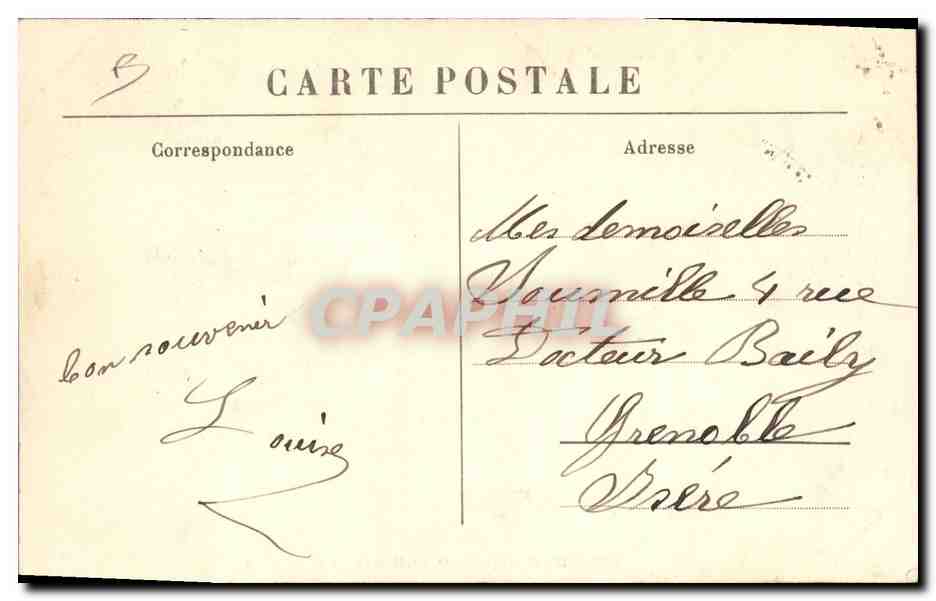 CARTE POSTALE
Correspondance
Adresse
bon souvenir
Louise
Mes demoiselles
4 rue
Docteur Baily
Grenoble
Isére
CPAPHIL